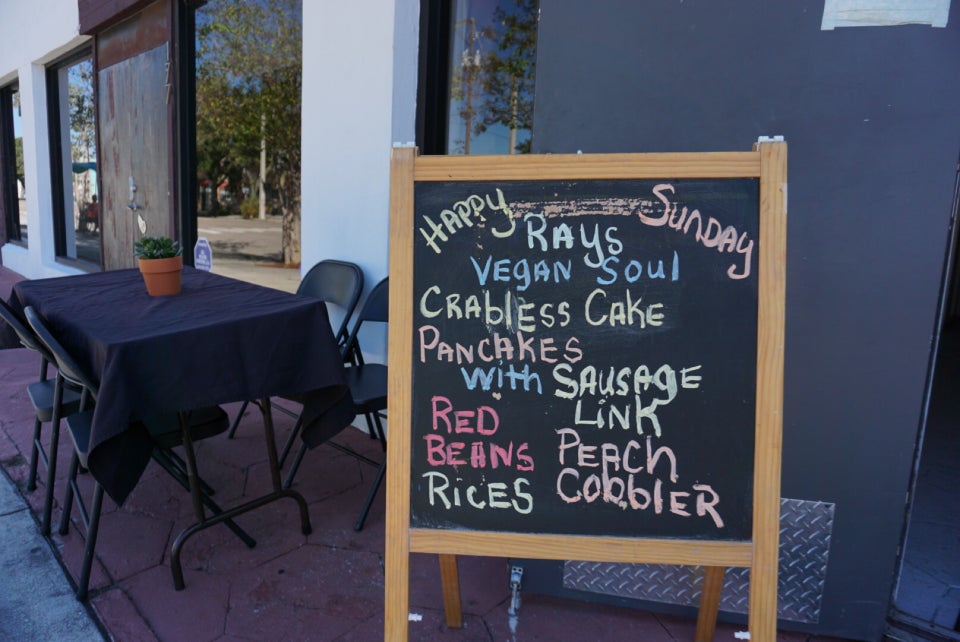 Happy Sunday
Rays
Vegan Soul
Crabless Cake
Pancakes
With Sausage
Link
Red
Beans
Rices
Peach
Cobbler